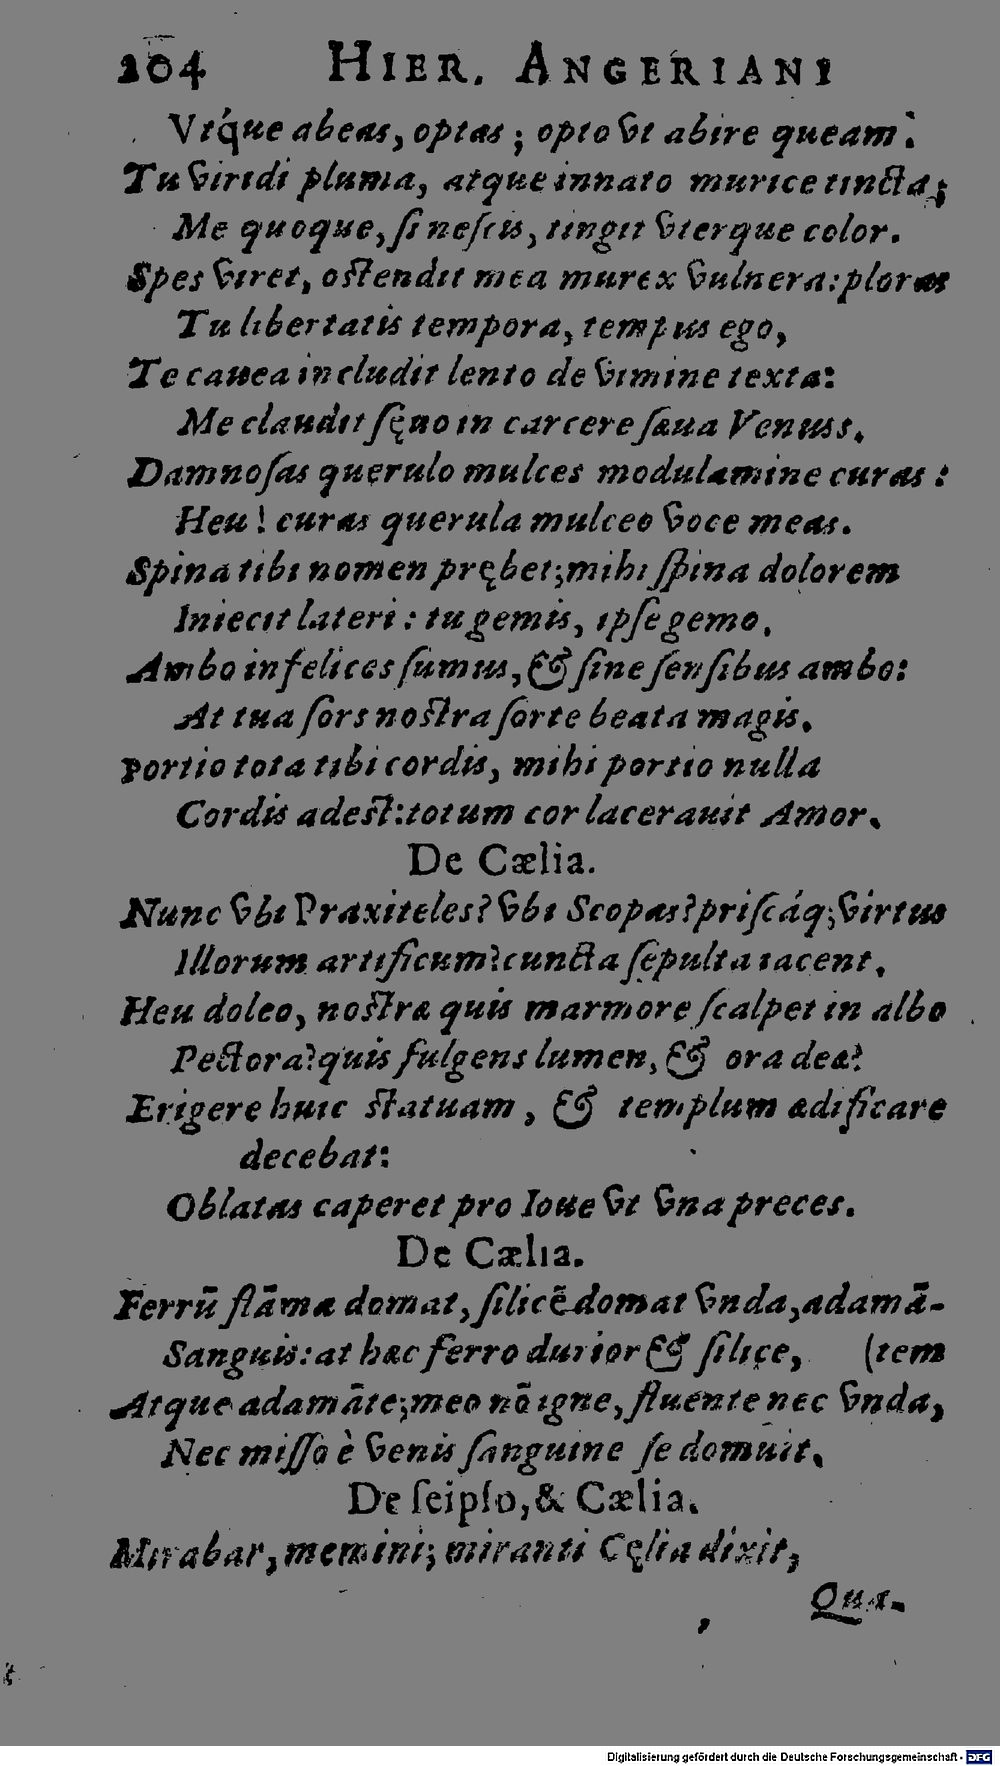 204 HIER. ANGERIANI
Vtq́ue abeas, optas; opto vt abire queam:
Tu viridi pluma, atque innato murice tincta;
Me quoque, si nescis, tingit vterque color.
Spes viret, ostendit mea murex vulnera: ploras
Tu libertatis tempora, tempus ego,
Te cauea includit lento de vimine texta:
Me claudit sęuo in carcere sæua Venuss.
Damnosas querulo mulces modulamine curas:
Heu! curas querula mulceo voce meas.
Spina tibi nomen prębet; mihi spina dolorem
Iniecit lateri: tu gemis, ipse gemo.
Ambo infelices sumus, & sine sensibus ambo:
At tua sors nostra sorte beata magis.
Portio tota tibi cordis, mihi portio nulla
Cordis adest: totum cor lacerauit Amor.
De Cælia.
Nunc vbi Praxiteles? vbi Scopas? priscáq; virtus
Illorum artificum? cuncta sepulta iacent.
Heu doleo, nostræ quis marmore scalpet in albo
Pectora? quis fulgens lumen, & ora deæ?
Erigere huic statuam, & templum ædificare
decebat:
Oblatas caperet pro Ioue vt vna preces.
De Cælia.
Ferrū flāma domat, silicē domat vnda, adamā-
Sanguis: at hæc ferro durior & silice, (tem
Atque adamāte; meo nō igne, fluente nec vnda,
Nec misso è venis sanguine se domuit.
De seipso, & Cælia.
Mirabar, memini; miranti Cęlia dixit,
Qua-
Digitalisierung gefördert durch die Deutsche Forschungsgemeinschaft - DFG